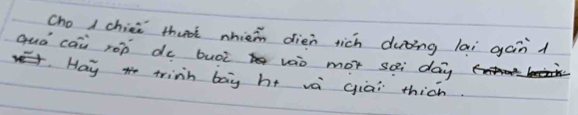 Cho 1 chiếc thước nhiễm điện tích dương lại gần 1
quả cầu xốp đc buộc vào một sợi dây
. Hãy trình bày ht và giải thích.